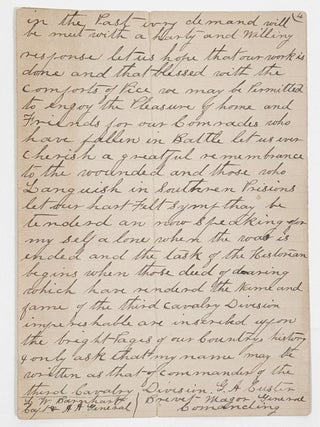 4
in the Past ivry demand will
be meet with a Harty and Willing
response let us hope that our work is
done and that blessed with the
Comforts of Pice we may be Permitted
to enjoy the Pleasure of home and
Friends for our Comrades who
have fallen in Battle let us ever
Cherish a greatful remembrance
to the wounded and those who
Languish in Southren Prisions
let our hart felt sympthay be
tenderd an now Speaking for
my self alone when the war is
ended and the task of the Historian
begins when those deed of daring
which have renderd the name and
fame of the third cavalry Division
imperishable are inscribed upon
the bright Pages of our Countrys history
I only ask that my name may be
written as that of commander of the
third Cavalry Division. G. A. Custer
L. W. Barnhart Brevet Major General
Capt & A A General Comancling